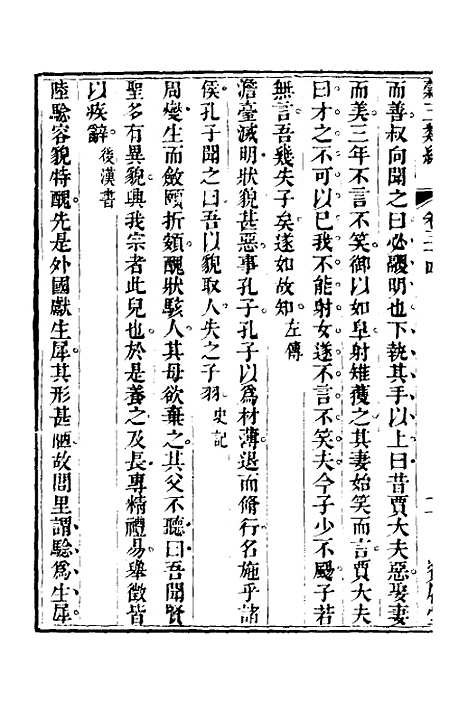 而善叔向聞之曰必鬷明也下執其手以上曰昔賈大夫惡娶妻
而美三年不言不笑御以如臯射雉獲之其妻始笑而言賈大夫
曰才之不可以已我不能射女遂不言不笑夫今子少不颺子若
無言吾幾失子矣遂如故知左傳
澹臺滅明狀貌甚惡事孔子孔子以爲材薄退而脩行名施乎諸
侯孔子聞之曰吾以貌取人失之子羽史記
周燮生而斂頤折頞醜狀駭人其母欲棄之其父不聽曰吾聞賢
聖多有異貌興我宗者此兒也於是養之及長專精禮易舉徵皆
以疾辭後漢書
陸騐容貌特醜先是外國獻生犀其形甚陋故閭里謂騐爲生犀